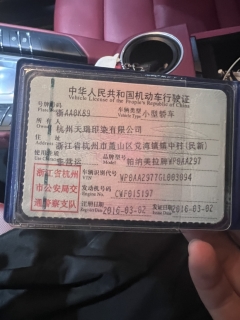 中华人民共和国机动车行驶证
Vehicle License of the People's Republic of China
号牌号码 浙AA8K89 车辆类型 小型轿车
Plate No. Vehicle Type
所有人 杭州天瑞印染有限公司
Owner
住址 浙江省杭州市萧山区党湾镇镇中村(民新)
Address
使用性质 非营运 品牌型号 帕纳美拉牌WP0AA297
Model
浙江省杭州市公安局交通警察支队
车辆识别代号 WP0AA297TGL003094
VIN
发动机号码 CWF015197
Engine No.
注册日期 2016-03-02 发证日期 2016-03-02
Register Date Issue Date